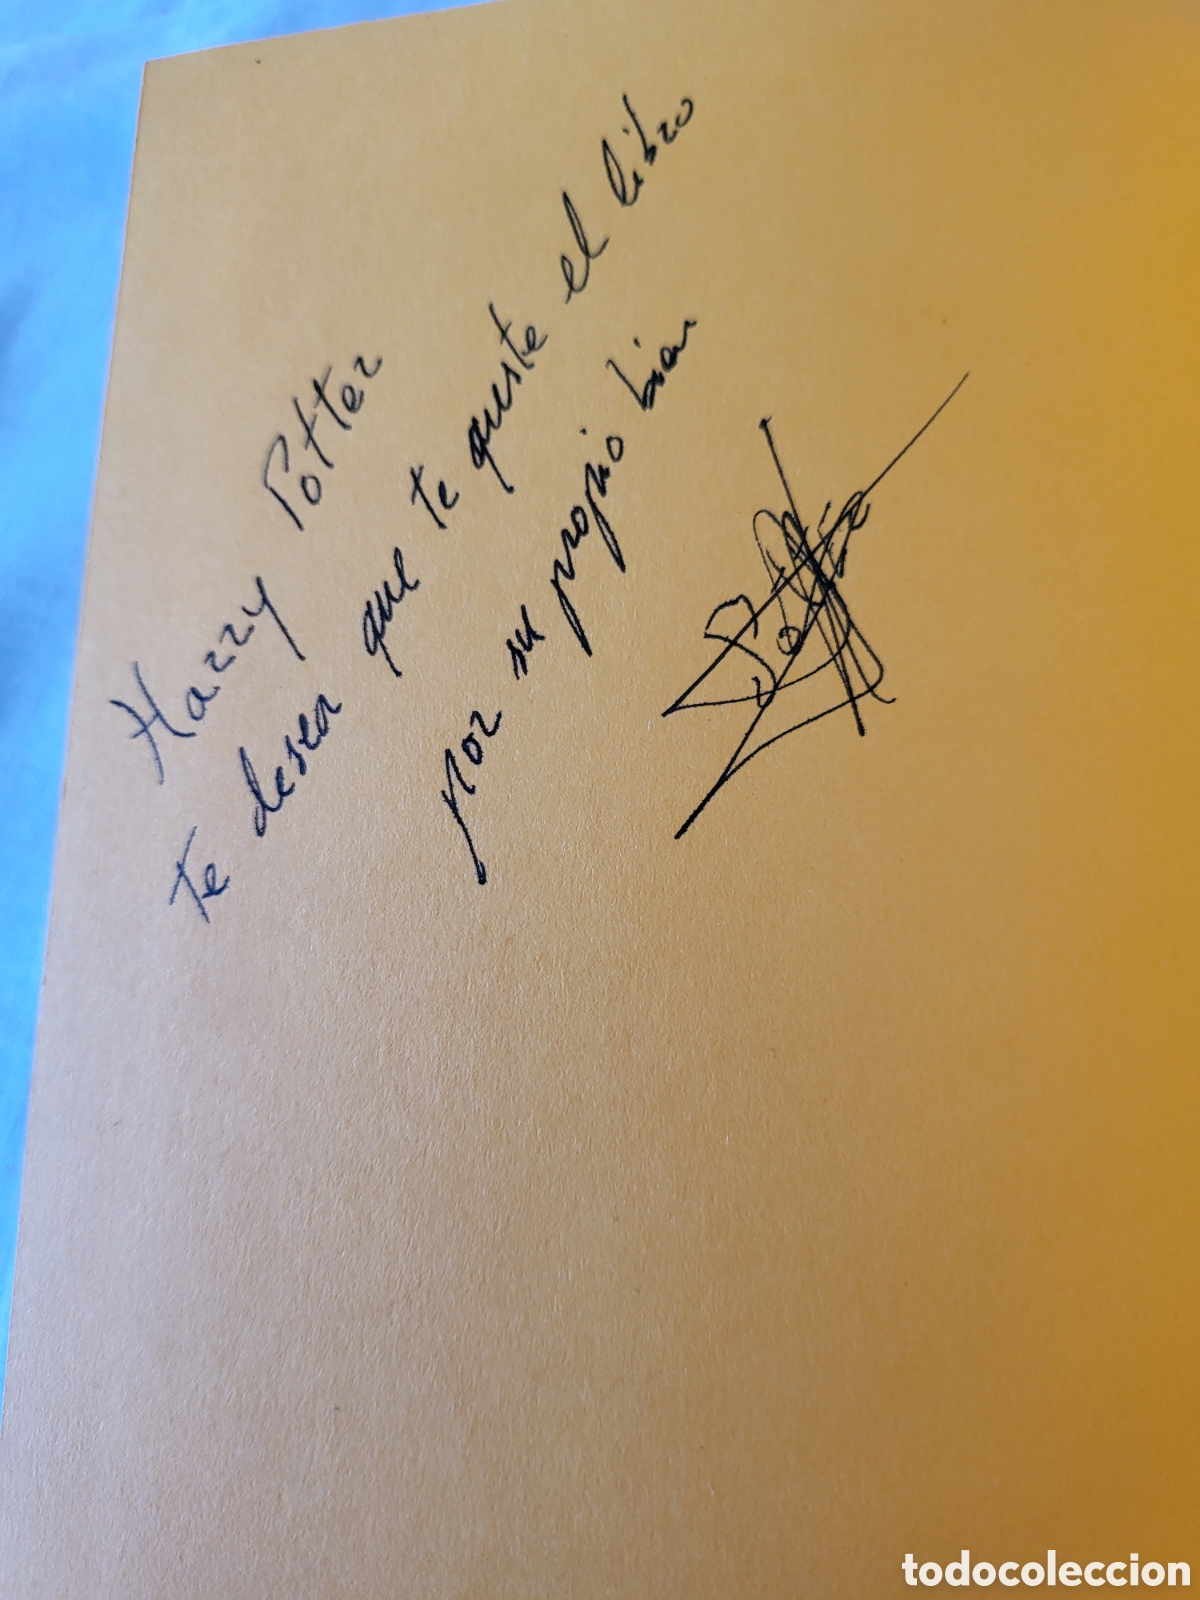 Harry Potter
te desea que te guste el libro
por su propio bien
todocoleccion